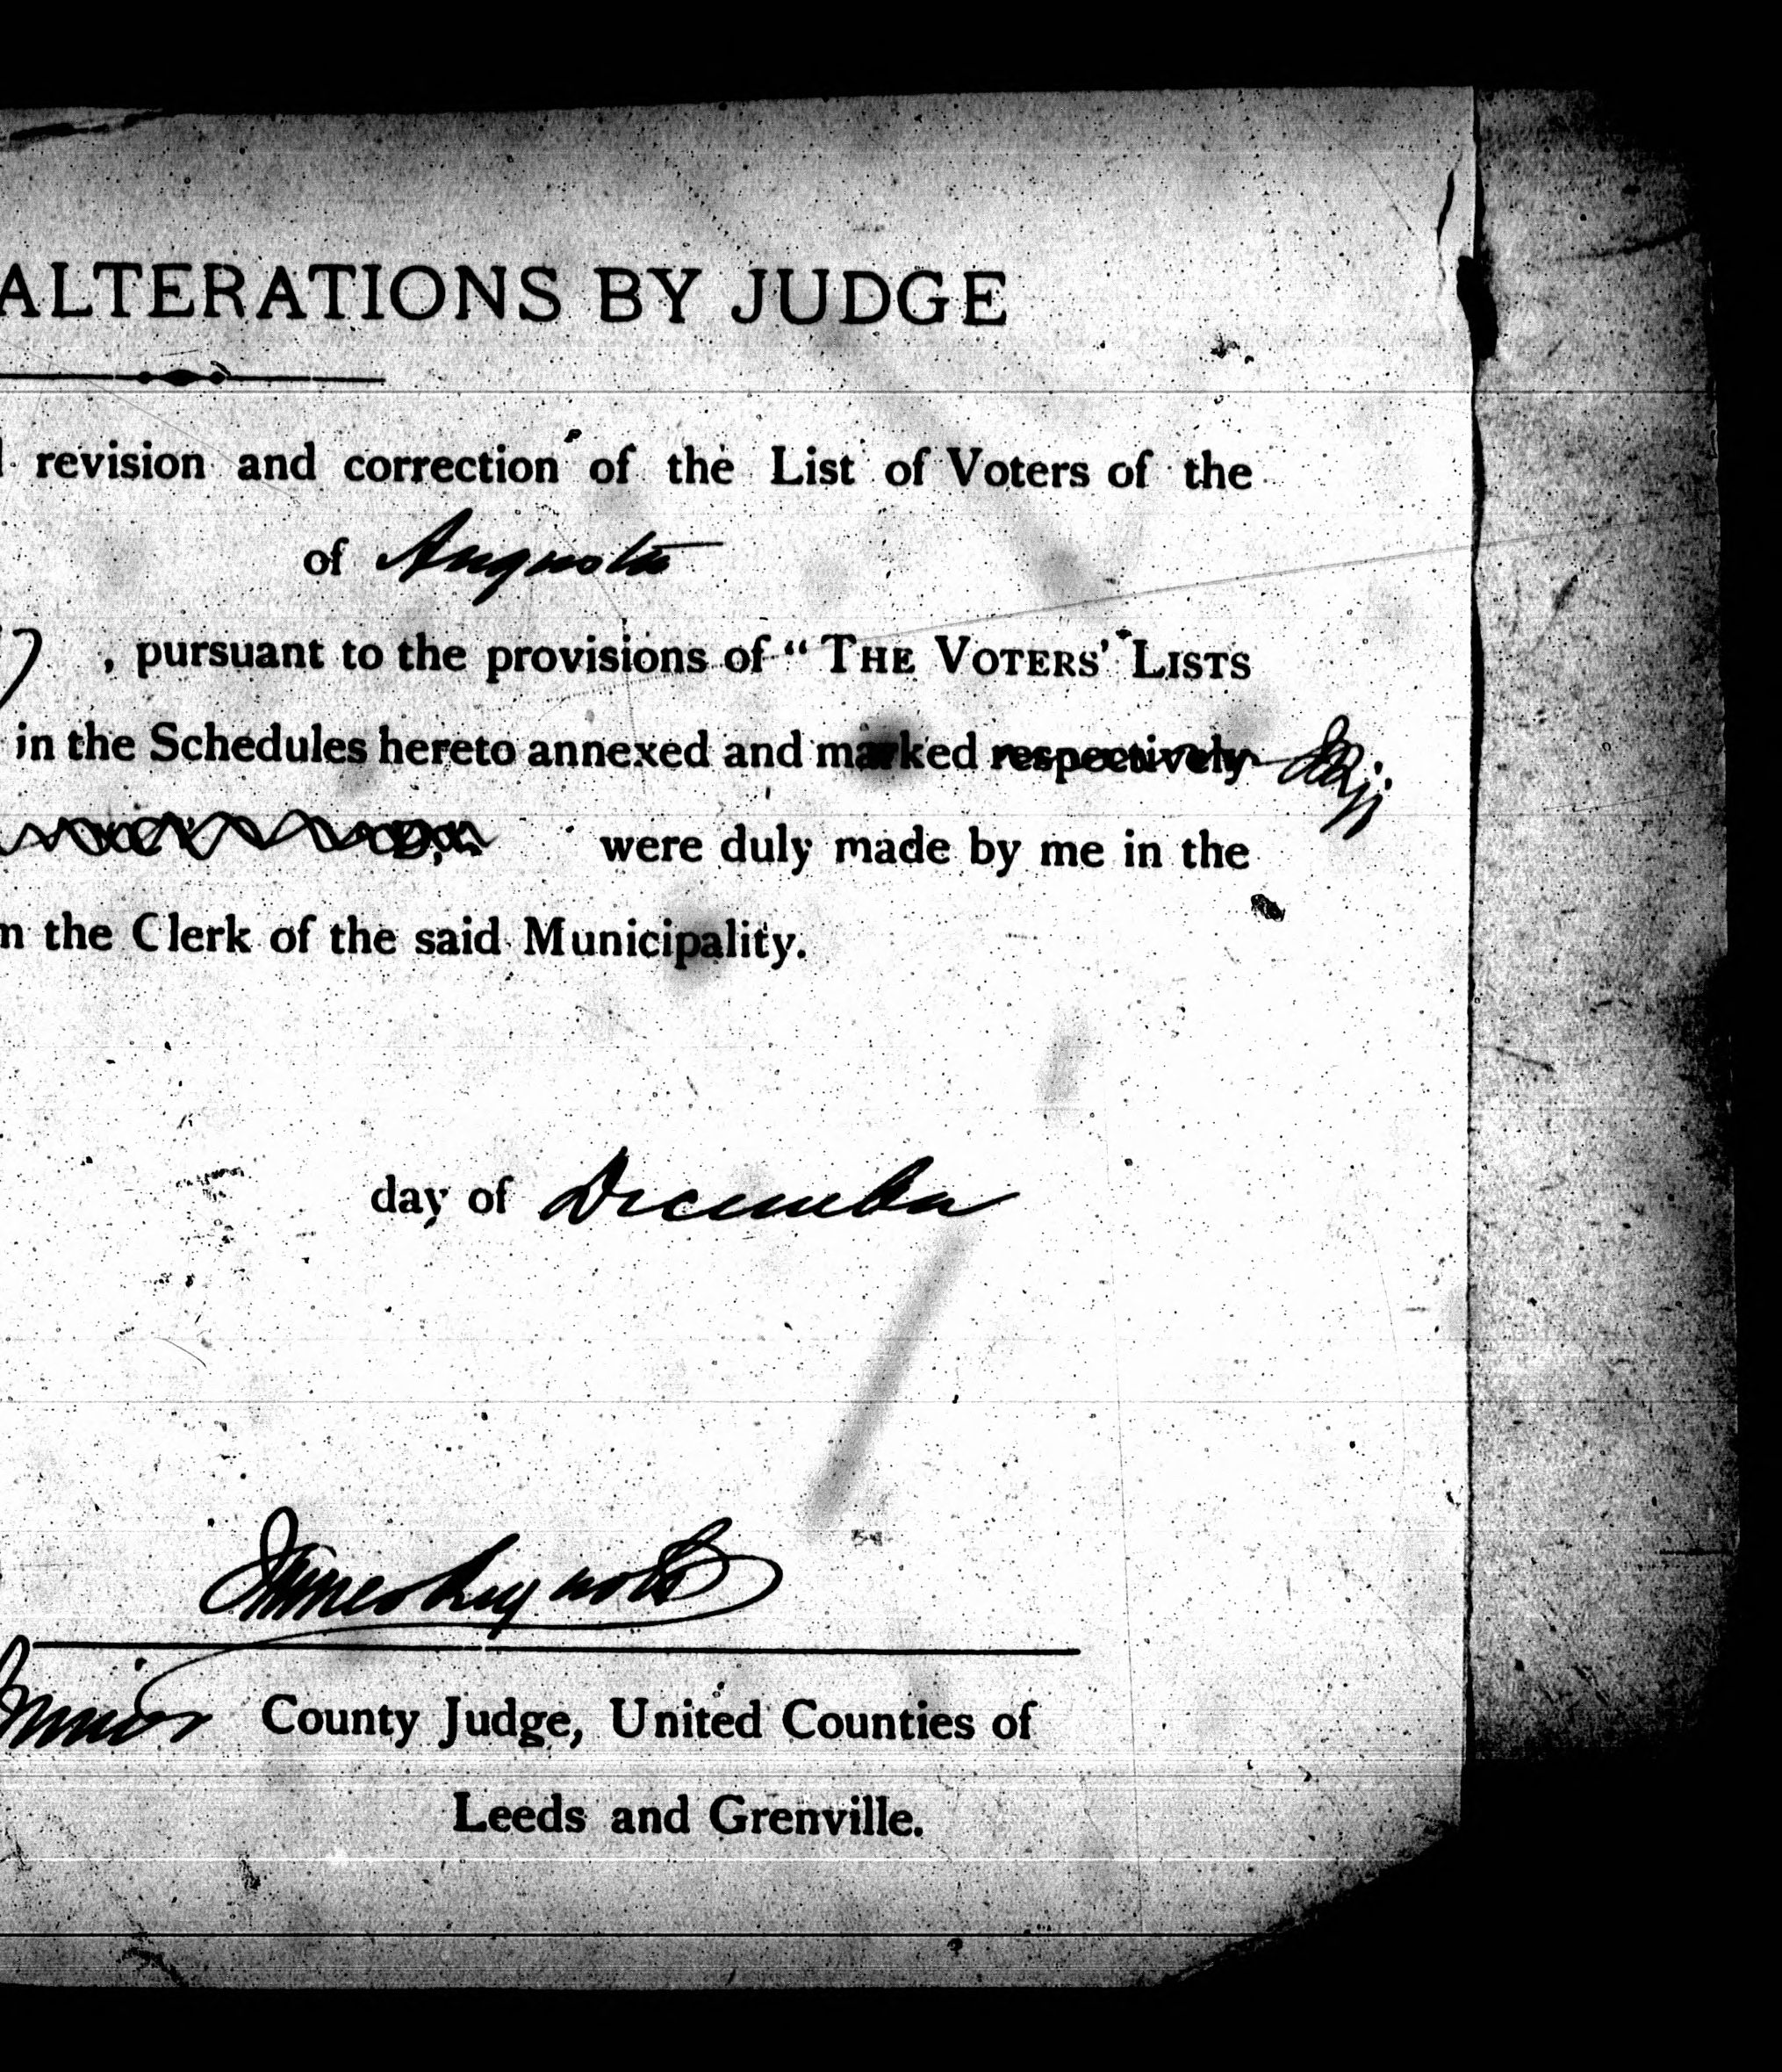 ALTERATIONS BY JUDGE
revision and correction of the List of Voters of the
of Augusta
, pursuant to the provisions of "THE VOTERS' LISTS
in the Schedules hereto annexed and marked respectively
were duly made by me in the
the Clerk of the said Municipality.
day of December
James Reynolds
Junior County Judge, United Counties of
Leeds and Grenville.